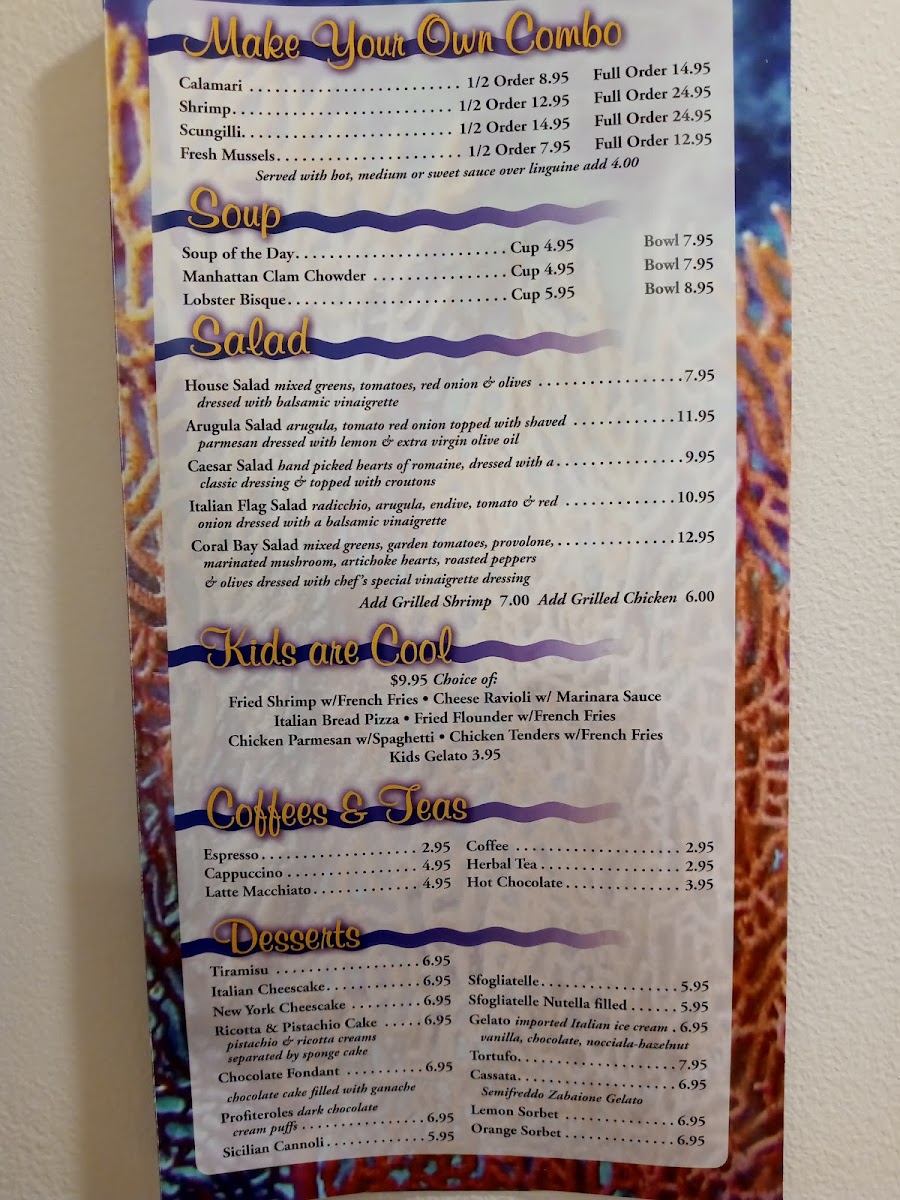 Make Your Own Combo
Calamari ........................ 1/2 Order 8.95 Full Order 14.95
Shrimp......................... 1/2 Order 12.95 Full Order 24.95
Scungilli........................ 1/2 Order 14.95 Full Order 24.95
Fresh Mussels..................... 1/2 Order 7.95 Full Order 12.95
Served with hot, medium or sweet sauce over linguine add 4.00
Soup
Soup of the Day........................ Cup 4.95 Bowl 7.95
Manhattan Clam Chowder ............... Cup 4.95 Bowl 7.95
Lobster Bisque......................... Cup 5.95 Bowl 8.95
Salad
House Salad mixed greens, tomatoes, red onion & olives .................7.95
dressed with balsamic vinaigrette
Arugula Salad arugula, tomato red onion topped with shaved ............11.95
parmesan dressed with lemon & extra virgin olive oil
Caesar Salad hand picked hearts of romaine, dressed with a...............9.95
classic dressing & topped with croutons
Italian Flag Salad radicchio, arugula, endive, tomato & red .............10.95
onion dressed with a balsamic vinaigrette
Coral Bay Salad mixed greens, garden tomatoes, provolone,..............12.95
marinated mushroom, artichoke hearts, roasted peppers
& olives dressed with chef's special vinaigrette dressing
Add Grilled Shrimp 7.00 Add Grilled Chicken 6.00
Kids are Cool
$9.95 Choice of:
Fried Shrimp w/French Fries • Cheese Ravioli w/ Marinara Sauce
Italian Bread Pizza • Fried Flounder w/French Fries
Chicken Parmesan w/Spaghetti • Chicken Tenders w/French Fries
Kids Gelato 3.95
Coffees & Teas
Espresso.................. 2.95
Cappuccino ............... 4.95
Latte Macchiato............ 4.95
Coffee ................... 2.95
Herbal Tea ................ 2.95
Hot Chocolate............. 3.95
Desserts
Tiramisu .................6.95
Italian Cheescake...........6.95
New York Cheescake ........6.95
Ricotta & Pistachio Cake .....6.95
pistachio & ricotta creams
separated by sponge cake
Chocolate Fondant ..........6.95
chocolate cake filled with ganache
Profiteroles dark chocolate
cream puffs ................6.95
Sicilian Cannoli.............5.95
Sfogliatelle................5.95
Sfogliatelle Nutella filled ......5.95
Gelato imported Italian ice cream . 6.95
vanilla, chocolate, nocciala-hazelnut
Tortufo...................7.95
Cassata...................6.95
Semifreddo Zabaione Gelato
Lemon Sorbet .............6.95
Orange Sorbet .............6.95